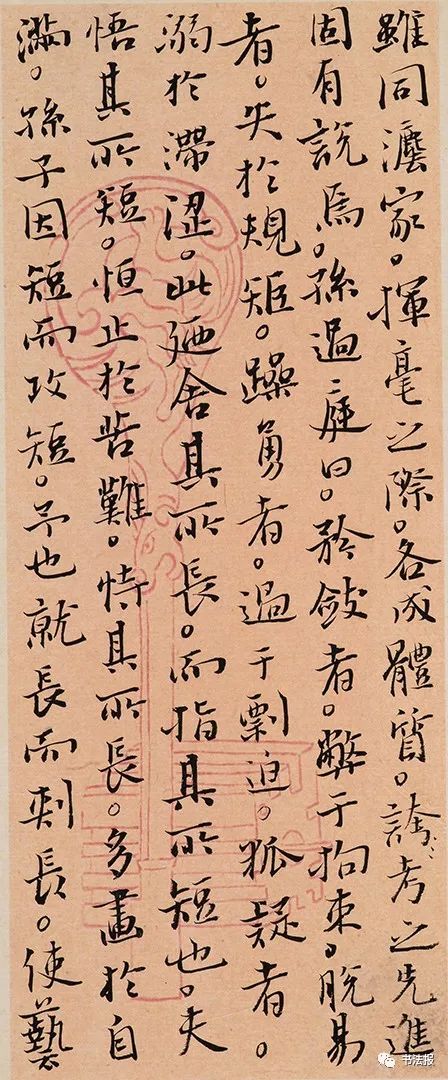 雖同灋家。揮毫之際。各成體質。考之先進
固有說焉。孫過庭曰。矜斂者。弊于拘束。脫易
者。失於規矩。躁勇者。過于剽迫。狐疑者。
溺於滯涩。此廼舍其所長。而指其所短也。夫
悟其所短。恒止於苦難。恃其所長。多畫於自
滿。孫子因短而攻短。予也就長而刺長。使藝
书法报